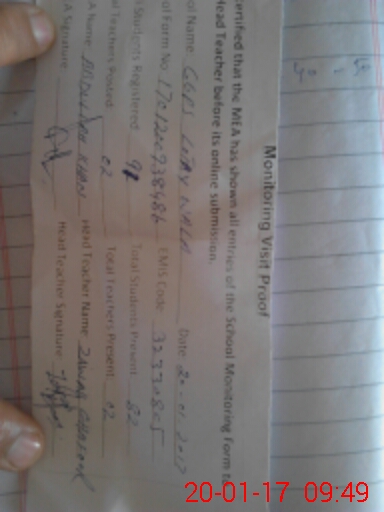 Monitoring Visit Proof
certified that the MEA has shown all entries of the School Monitoring Form to
Head Teacher before its online submission.
ol Name GGPS Date 20-01-2017
ol Form No. EMIS Code 32330805
Students Registered 91 Total Students Present 82
l Teachers Posted 02 Total Teachers Present 02
A Name ABDULLAH KHAN Head Teacher Name
A Signature Head Teacher Signature
20-01-17 09:49